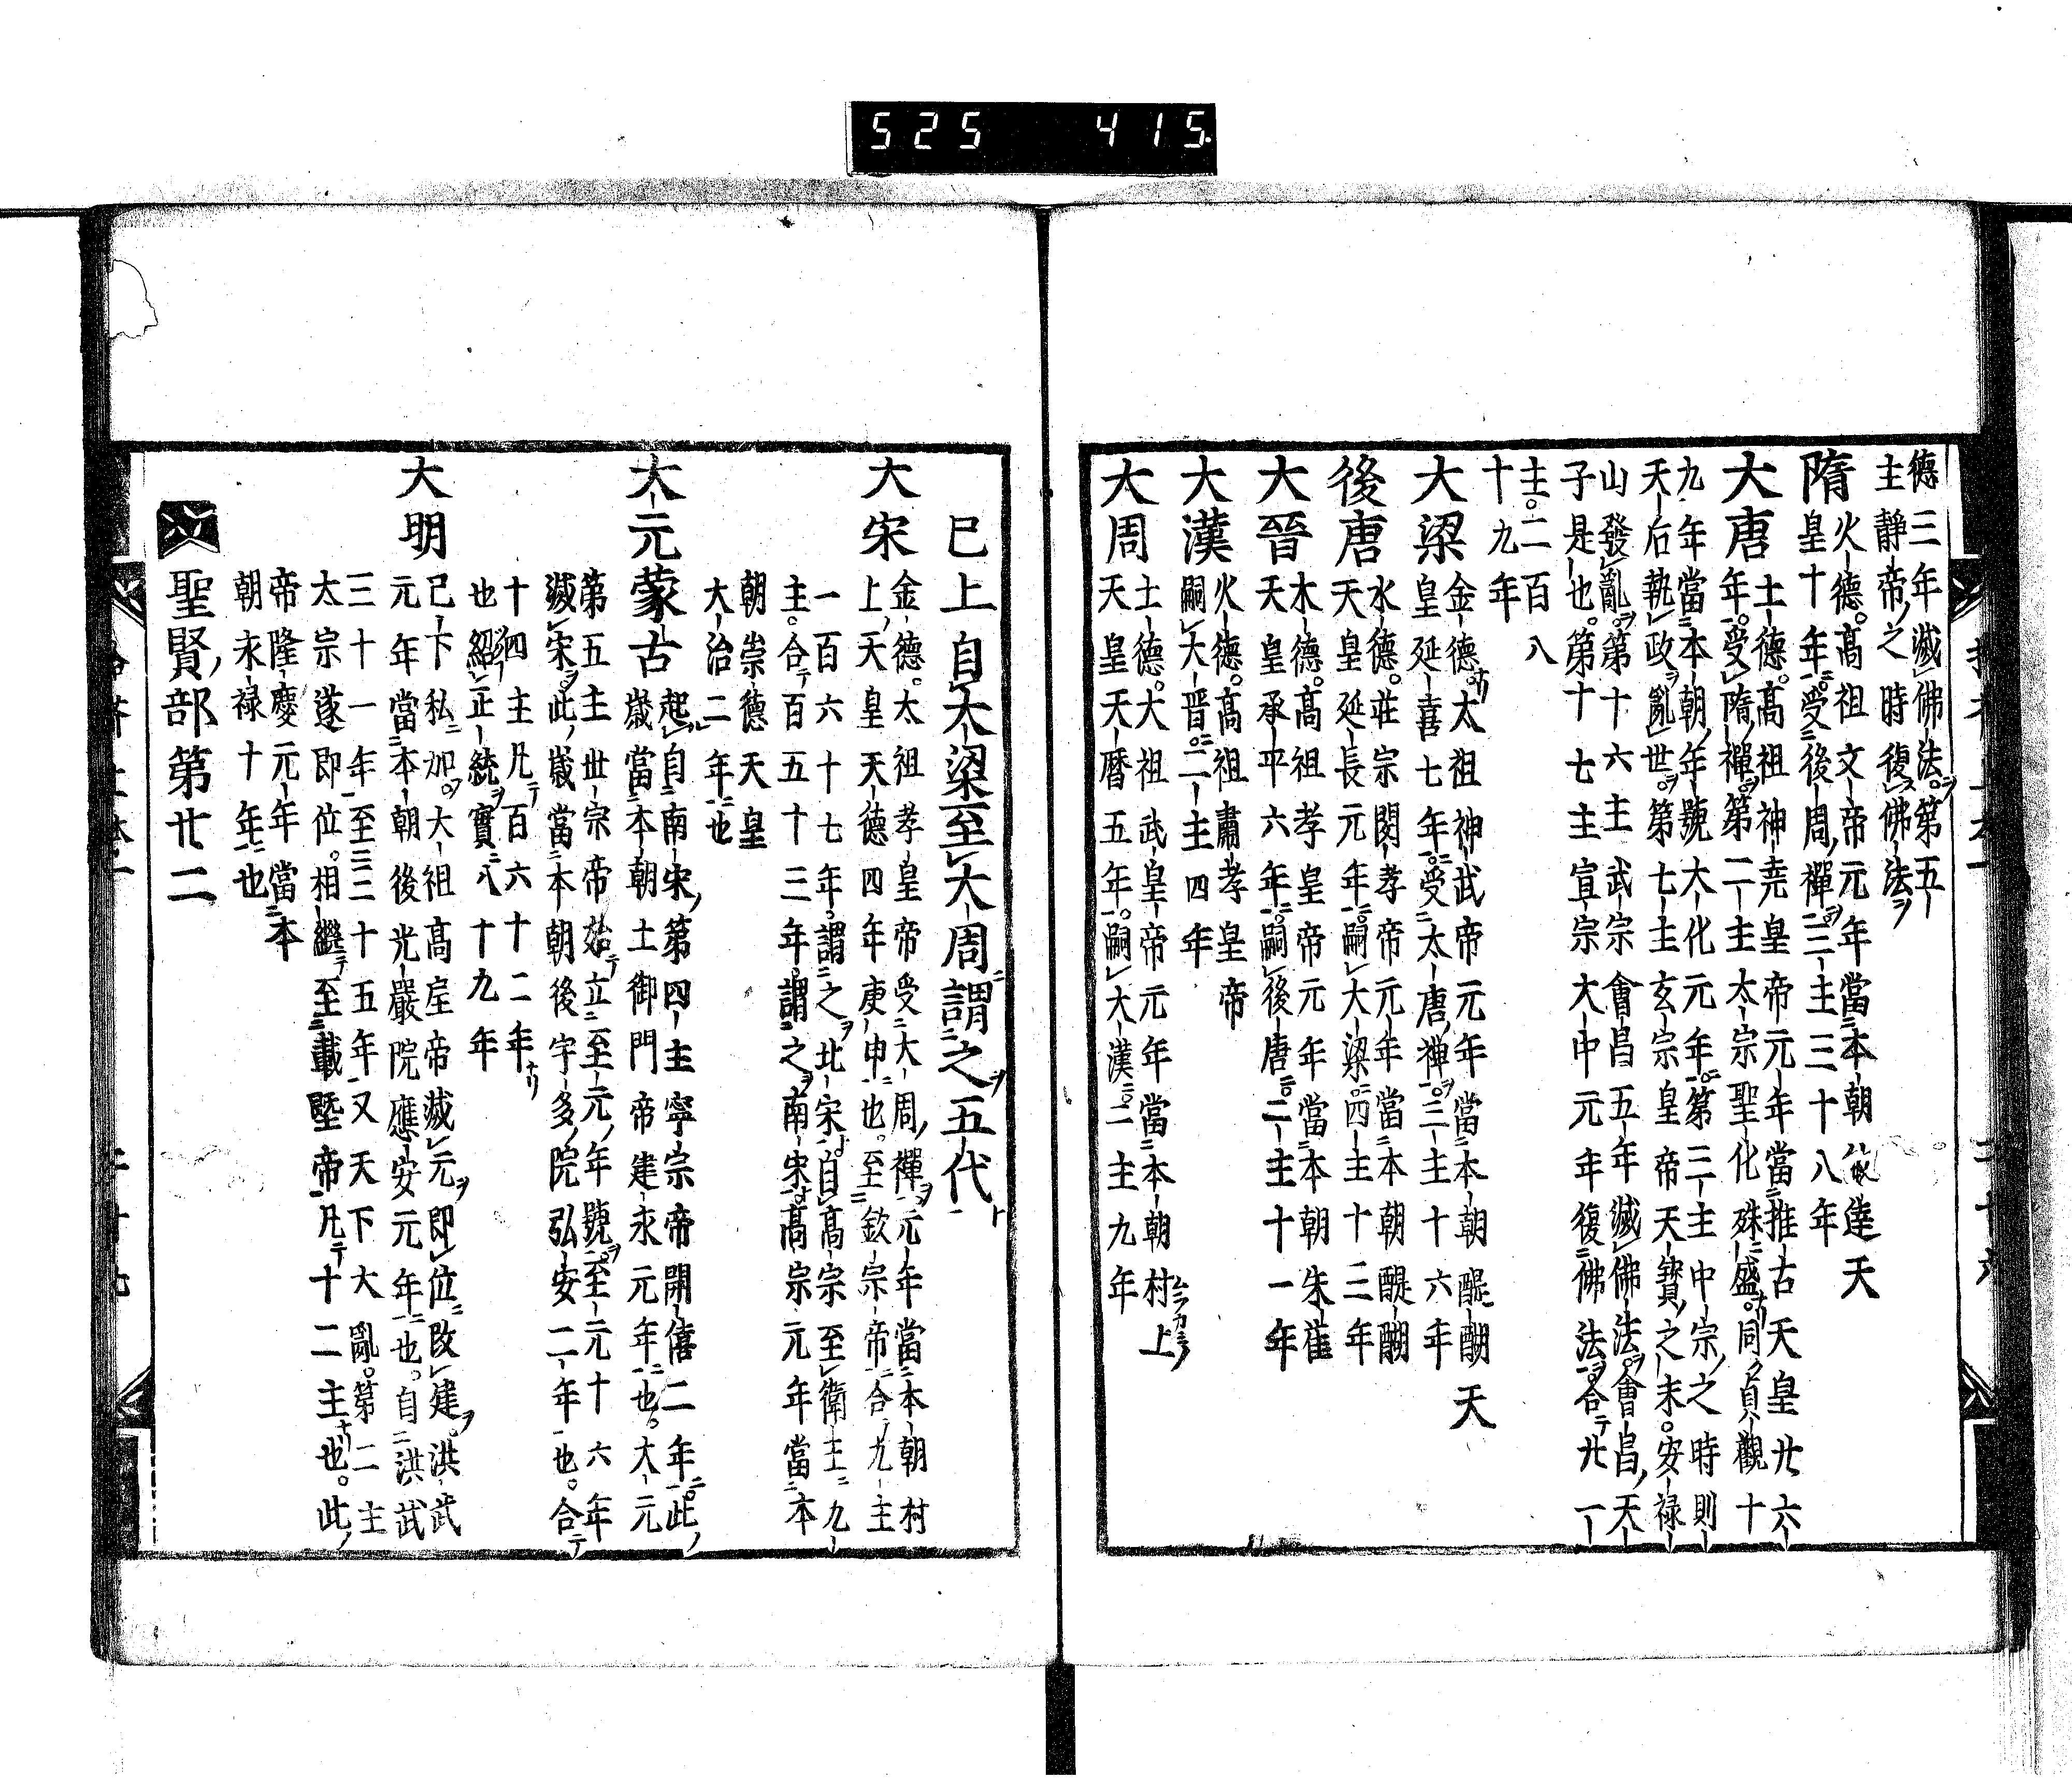 525 415
德三年滅佛法第五
主靜帝之時復佛法
隋
火德高祖文帝元年當本朝敏達天
皇十年受後周禪三主三十八年
大唐
土德高祖神堯皇帝元年當推古天皇廿六
年受隋禪第二主太宗聖化殊盛同貞觀十
九年當本朝年號大化元年第三主中宗之時則
天后執政亂世第七主玄宗皇帝天寶之末安祿
山發亂第十六主武宗會昌五年滅佛法會昌天
子是也第十七主宣宗大中元年復佛法合廿一
主二百八
十九年
大梁
金德太祖神武帝元年當本朝醍醐天
皇延喜七年受太唐禪三主十六年
後唐
水德莊宗閔孝帝元年當本朝醍醐
天皇延長元年嗣大梁四主十三年
大晉
木德高祖孝皇帝元年當本朝朱雀
天皇承平六年嗣後唐二主十一年
大漢
火德高祖肅孝皇帝
嗣大晉二主四年
大周
土德大祖武皇帝元年當本朝村上
天皇天曆五年嗣大漢二主九年
已上自大梁至大周謂之五代
大宋
金德太祖孝皇帝受大周禪元年當本朝村
上天皇天德四年庚申也至欽宗帝合九主
一百六十七年謂之北宋自高宗至衛王九
主合百五十三年謂之南宋高宗元年當本
朝崇德天皇
大治二年也
大元蒙古
起自南宋第四主寧宗帝開僖二年此
歲當本朝土御門帝建永元年也大元
第五主世宗帝始立至元年號至元十六年
滅宋此歲當本朝後宇多院弘安二年也合
十四主凡百六十二年
也紹正統實八十九年
大明
已下私加大祖高皇帝滅元即位改建洪武
元年當本朝後光嚴院應安元年也自洪武
三十一年至三十五年又天下大亂第二主
太宗遂即位相繼至載壐帝凡十二主也此
帝隆慶元年當本
朝永祿十年也
聖賢部第廿二